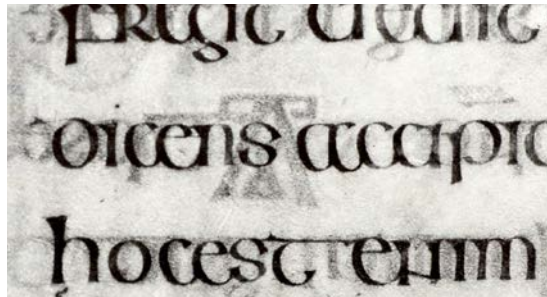 fregit dedit
dicens accipi
hocest enim